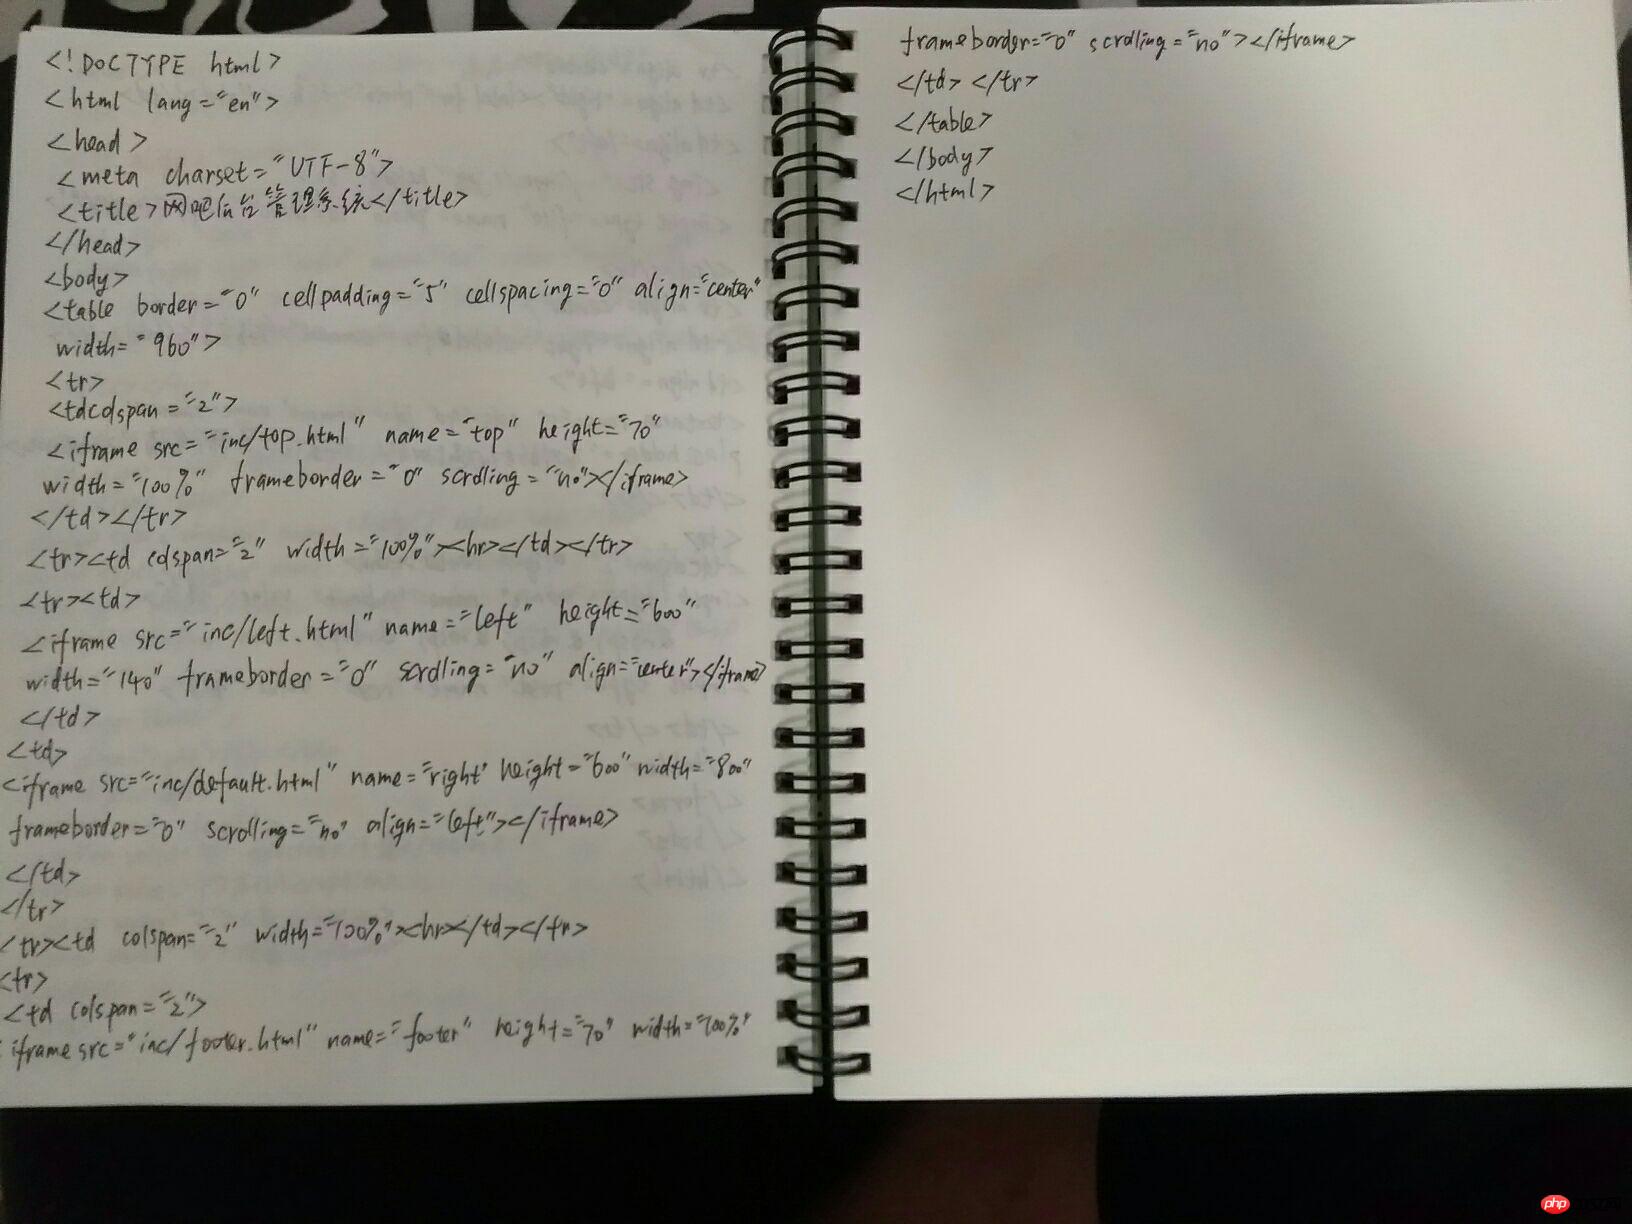 <!DOCTYPE html>
<html lang="en">
<head>
<meta charset="UTF-8">
<title>网吧后台管理系统</title>
</head>
<body>
<table border="0" cellpadding="5" cellspacing="0" align="center"
width="960">
<tr>
<tdcolspan="2">
<iframe src="inc/top.html" name="top" height="70"
width="100%" frameborder="0" scrolling="no"></iframe>
</td></tr>
<tr><td colspan="2" width="100%"><hr></td></tr>
<tr><td>
<iframe src="inc/left.html" name="left" height="600"
width="140" frameborder="0" scrolling="no" align="center"></iframe>
</td>
<td>
<iframe src="inc/default.html" name="right" height="600" width="800"
frameborder="0" scrolling="no" align="left"></iframe>
</td>
</tr>
<tr><td colspan="2" width="100%"><hr></td></tr>
<tr>
<td colspan="2">
<iframe src="inc/footer.html" name="footer" height="70" width="100%"
frameborder="0" scrolling="no"></iframe>
</td> </tr>
</table>
</body>
</html>
php